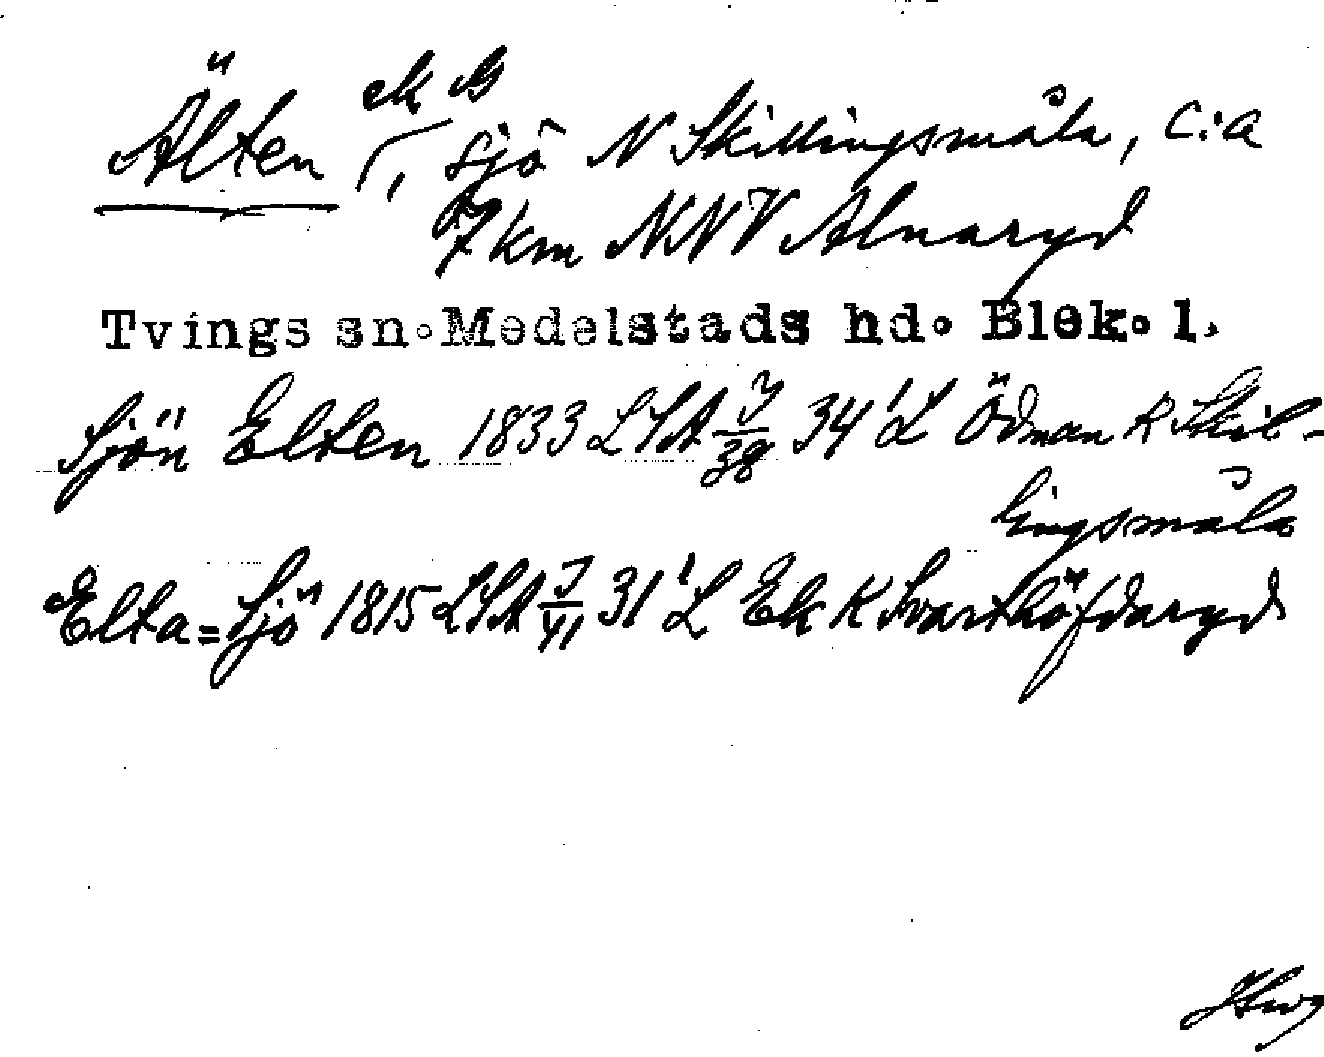 Älten ek G, sjö N Skillingsmåla, c:a
7 km NNV Alnaryd
Tvings sn. Medelstads hd. Blek. l.
Sjön Elten 1833 LSA J/38 34 'L Ödman K Skil-
lingsmåla
Elta=Sjö 1815 LSA J/VI 31 'L Ek K Svarthöfdaryd